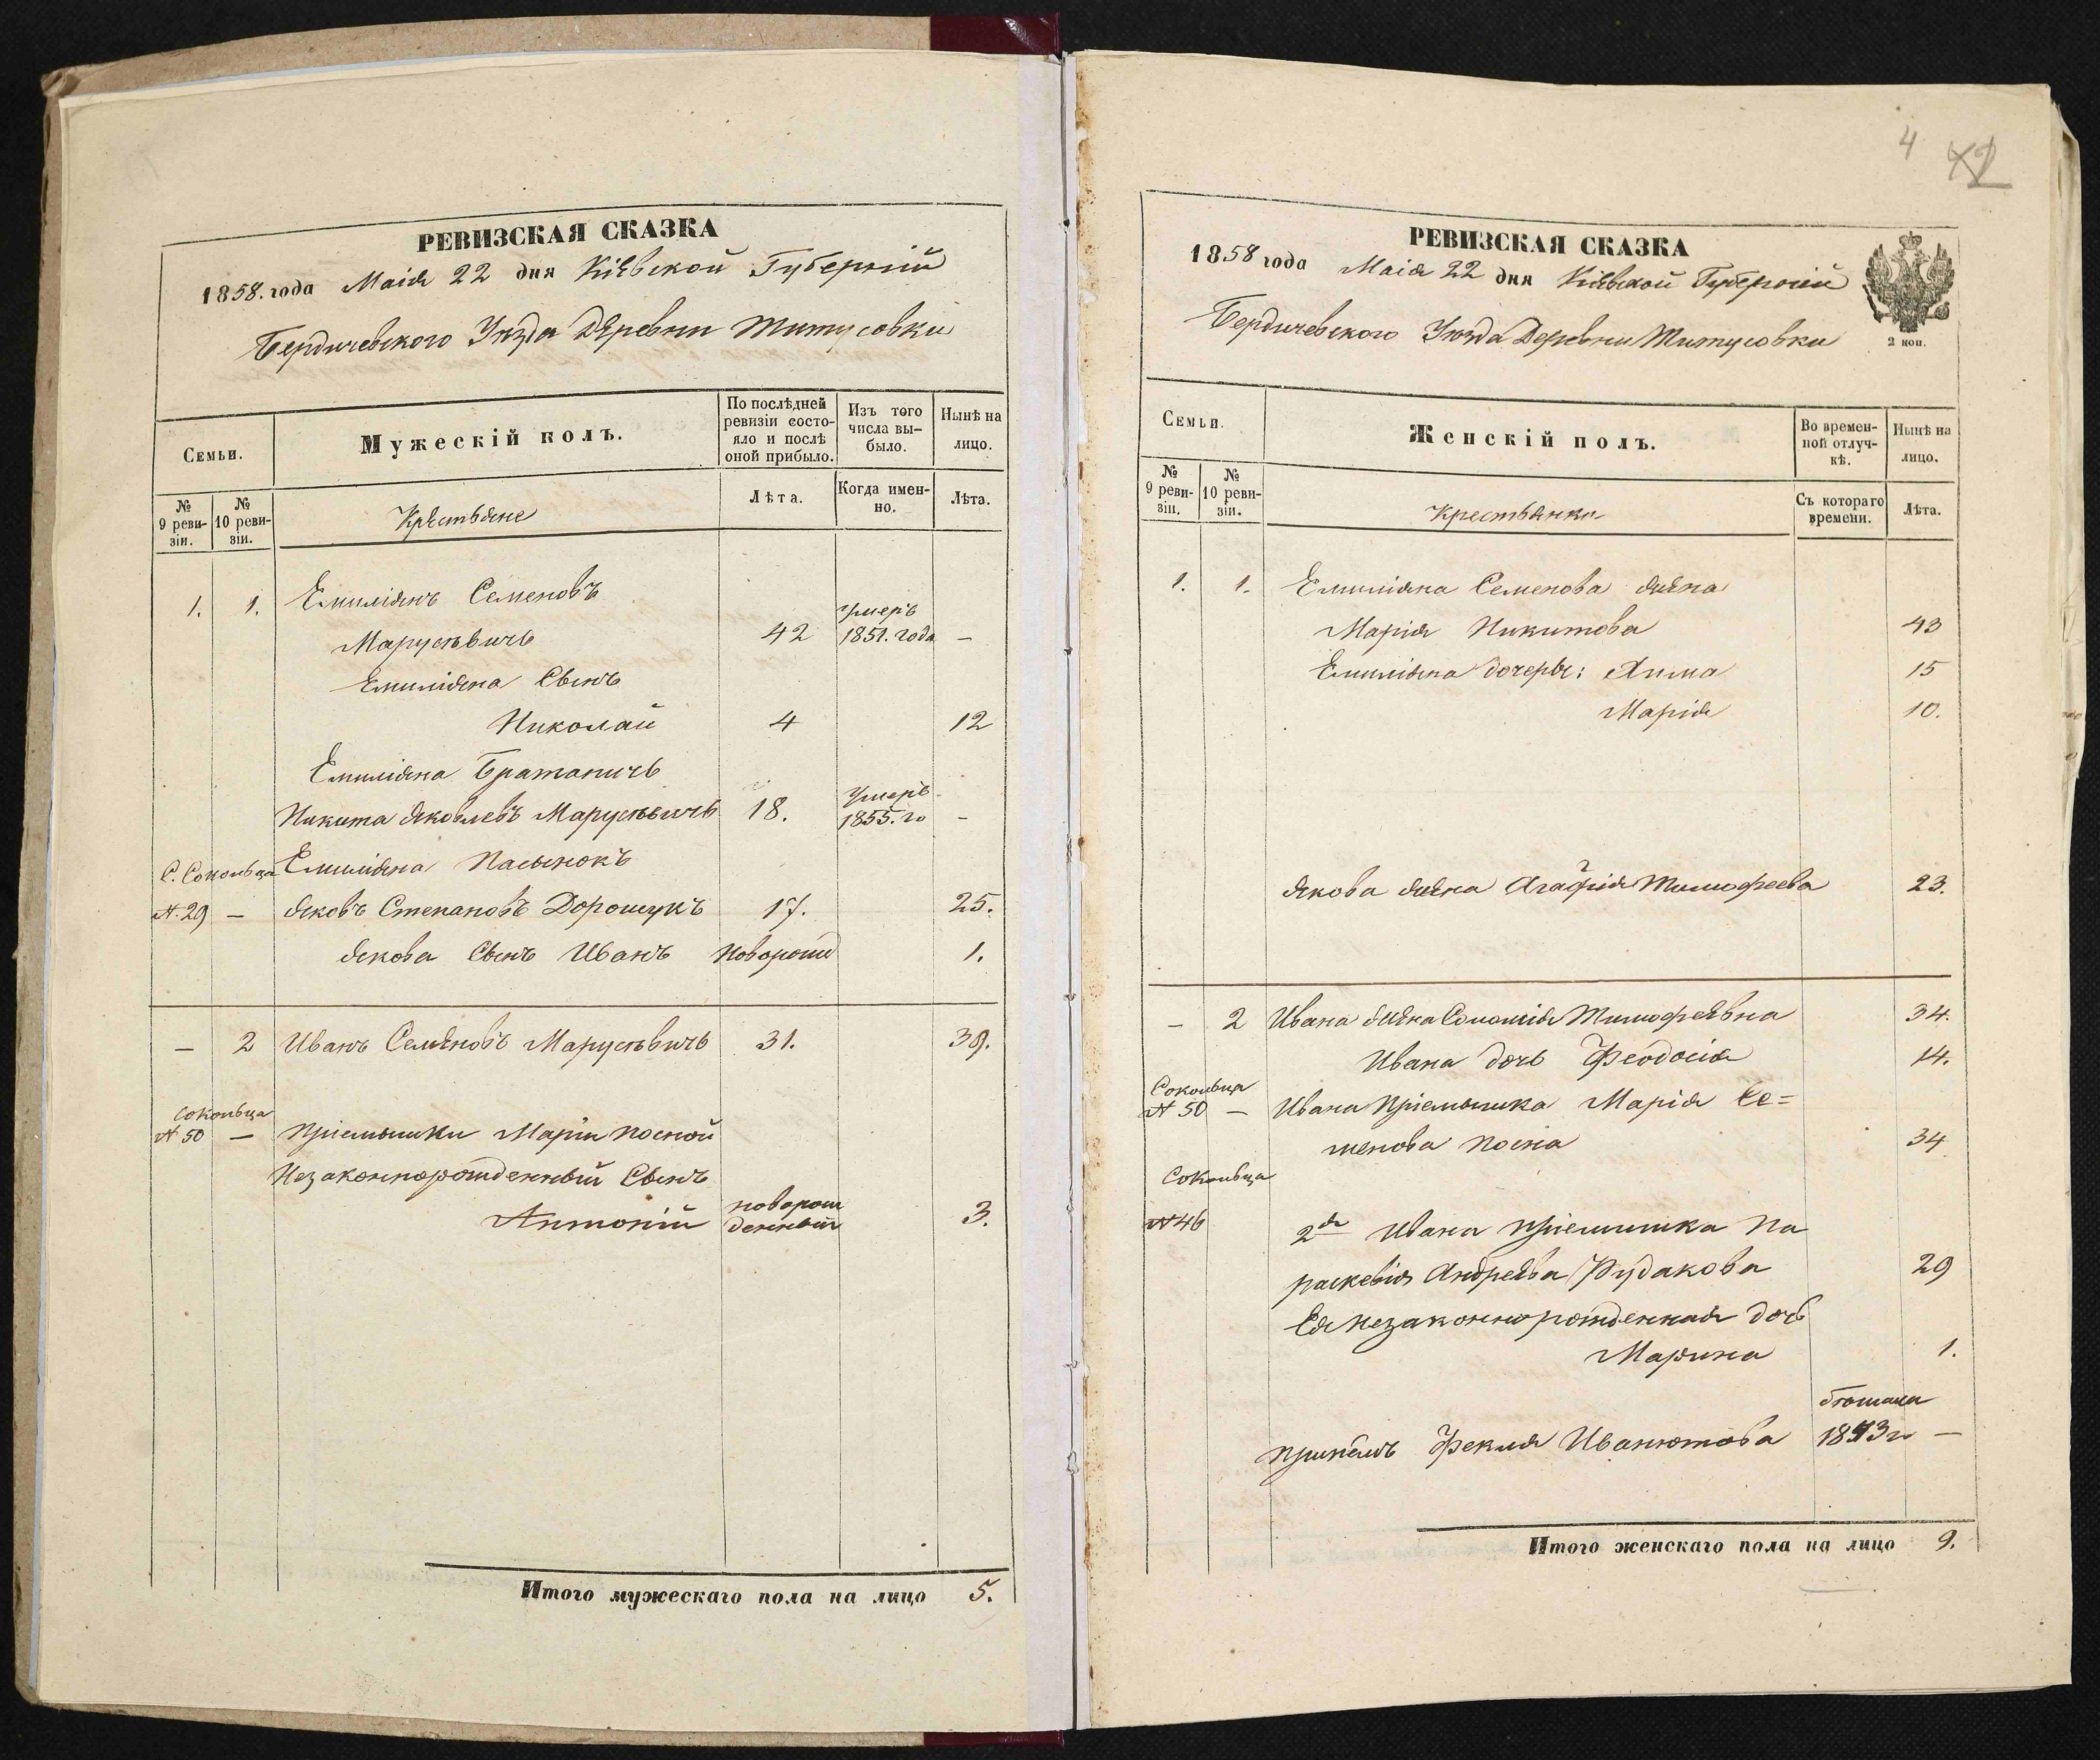 РЕВИЗСКАЯ СКАЗКА
1858. года Маія 22 дня Кіевской Губерніи
Бердичевского Уезда Деревни Титусовки
Семьи.
Мужескій полъ.
По послѣдней ревизіи состо-
яло и послѣ
оной прибыло.
Изъ того
числа вы-
было.
Нынѣ на
лицо.
№
9 реви-
зіи.
№
10 реви-
зіи.
Крестьяне
Лѣта.
Когда имен-
но.
Лѣта.
1. 1. Емиліянъ Семеновъ
Марусѣвичь 42 умеръ 1851. года –
Емиліяна Сынъ
Николай 4 12
Емиліяна Братаничь
Никита Яковлевъ Марусѣвичь 18. Умеръ 1855. го –
С. Сокольца Емиліяна Пасынокъ
№. 29 – Яковъ Степановъ Дорошукъ 17. 25.
Якова Сынъ Иванъ Новорожд 1.
– 2 Иванъ Семеновъ Марусѣвичь 31. 39.
Сокольца
№ 50 – Пріемышки Маріи Посной
Незаконнорожденный Сынъ
Антоній новорож
денный 3.
Итого мужескаго пола на лицо 5.
4
2
РЕВИЗСКАЯ СКАЗКА
1858 года Маія 22 дня Кіевской Губерніи
Бердичевского Уезда Деревни Титусовки
2 коп.
Семьи.
Женскій полъ.
Во времен-
ной отлуч-
кѣ.
Нынѣ на
лицо.
№
9 реви-
зіи.
№
10 реви-
зіи.
Крестьянки
Съ котораго
времени.
Лѣта.
1. 1. Емиліяна Семенова жена
Марія Никитова 43
Емиліяна дочеры: Анна 15
Марія 10.
Якова жена Агафія Тимофеева 23.
– 2 Ивана жена Соломія Тимофеевна 34.
Ивана дочь Феодосія 14.
Сокольца
№ 50 – Ивана Пріемышка Марія Се=
менова Посна 34
Сокольца
№ 46 2я Ивана пріемышка Па
раскевія Андреева Рудакова 29
Ея незаконнорожденная дочь
Марина 1.
Фекла Иванютова бежала 1853 го –
Итого женскаго пола на лицо 9.